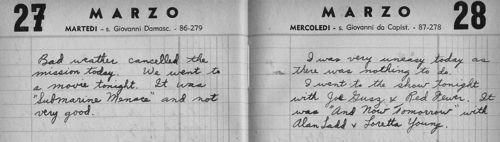 27 MARZO
MARTEDI - s. Giovanni Damasc. - 86-279
Bad weather cancelled the
mission today. We went to
a movie tonight. It was
"Submarine Menace" and not
very good.
MARZO 28
MERCOLEDI - s. Giovanni da Capist. - 87-278
I was very uneasy today as
there was nothing to do.
I went to the show tonight
with Joe & Red Fewer. It
was "And Now Tomorrow" with
Alan Ladd & Loretta Young.